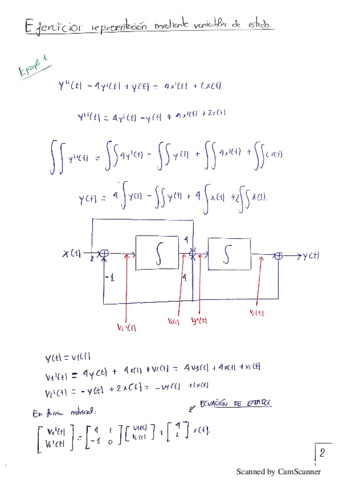 Ejercicios representación mediante variables de estado.
Ejemplo 1
y''(t) - 4y'(t) + y(t) = 4x'(t) + 2x(t)
y''(t) = 4y'(t) - y(t) + 4x'(t) + 2x(t)
∫∫ y''(t) = ∫∫ 4y'(t) - ∫∫ y(t) + ∫∫ 4x'(t) + ∫∫ 2x(t)
y(t) = 4 ∫ y(t) - ∫∫ y(t) + 4 ∫ x(t) + 2 ∫∫ x(t).
4
x(t) 2 ∫ ∫ y(t)
-1 4
V2'(t) V2(t) V1'(t) V1(t)
y(t) = v1(t)
V1'(t) = 4y(t) + 4x(t) + V2(t) = 4v1(t) + 4x(t) + v2(t)
V2'(t) = -y(t) + 2x(t) = -v1(t) + 2x(t)
En forma matricial: ECUACIÓN DE ESTADO
[V1'(t)] = [4 1] [v1(t)] + [4] x(t).
[V2'(t)] [-1 0] [v2(t)] [2]
2
Scanned by CamScanner